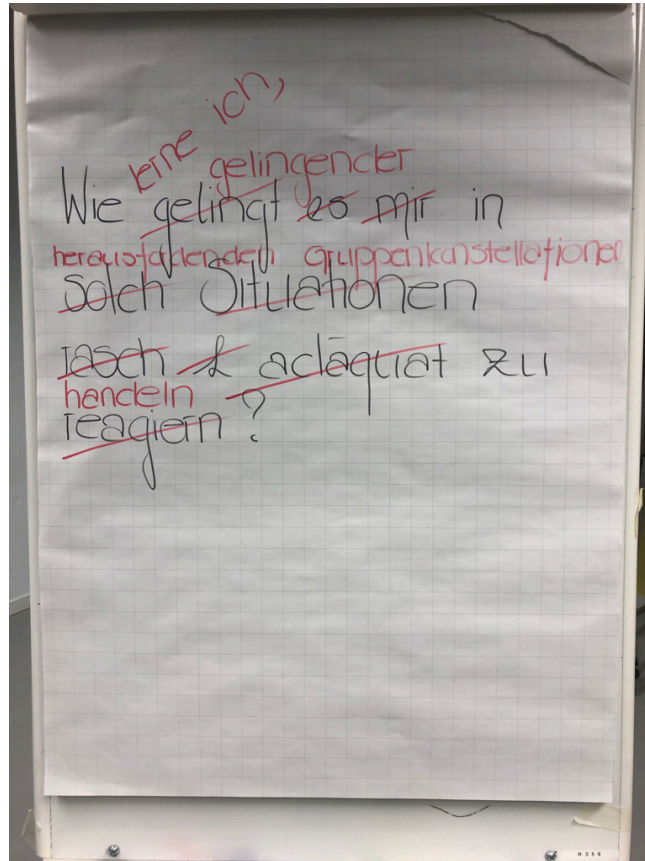 lerne ich,
gelingender
Wie gelingt es mir in
herausfordernden Gruppenkonstellationen
solch Situationen
rasch & adäquat zu
handeln
reagiern ?
R 3 5 8